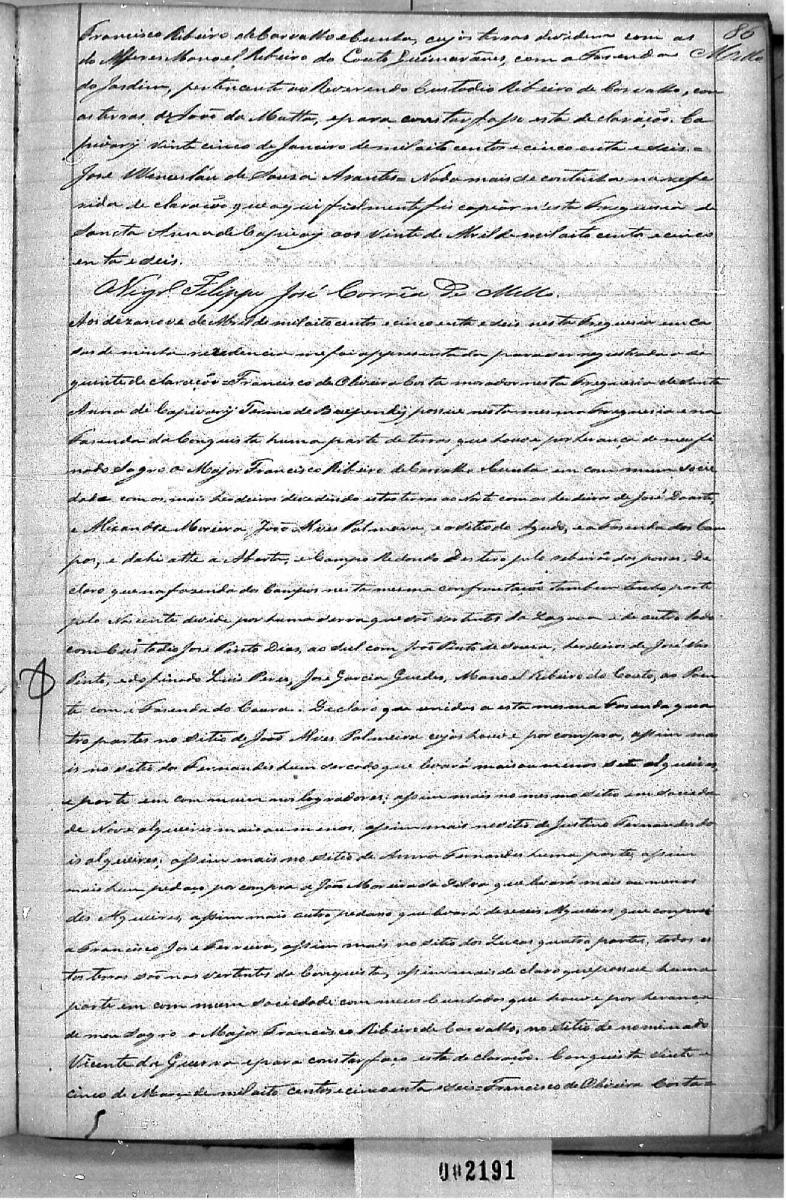 86
Mello
Francisco Ribeiro de Carvalho e Cunha, cujas terras dividem com as
do Alferes Manoel Ribeiro do Couto Guimarães, com a Fasenda
do Jardim, pertencente ao Reverendo Custodio Ribeiro de Carvalho, com
as terras de João da Matta, e para constar faço esta declaração. Ca
pivary vinte cinco de Janeiro de mil oito centos e cinco enta e seis.
José Wencesláu de Souza Arantes. Nada mais de continha na refe
rida declaração que aqui fielmente fis copiar nesta Freguesia de
Sancta Anna de Capivary aos vinte de Abril de mil oito cento e cinco
enta e seis.
Vigrº Filippe José Corrêa De Mello.
Aos dezanove de Abril de mil oito centos e cinco enta e seis nesta Freguesia em ca
sas de minha rezidencia me foi appresentada para ser registrada a se
guinte declaração = Francisco de Oliveira Costa morador nesta Freguesia de Santa
Anna de Capivary Termo de Baependy, possue nesta mesma Freguesia e na
Fasenda da Conquista huma parte de terras que houve por herança de meu fi
nado Sogro o Major Francisco Ribeiro de Carvalho Cunha em com mum socie
dade com os mais herdeiros dividindo estas terras ao Norte com os herdeiros de José Duarte,
e Alexandre Moreira, João Alves Palmeira, e o sitio do Ajudo, e a Fasenda dos Cam
pos, e dahi atte a Aberta, e Campo Redondo Desterro pelo ribeirão dos poços, De
claro que na fazenda dos Campos nesta mesma confrontação tambem tenho parte
pelo Nascente divide por huma serra que são vertentes da Lagoa e de outro lado
com Custodio José Pinto Dias, ao Sul com João Pinto de Souza, herdeiros de José Vas
Pinto, e do finado Luis Peres, José Garcia Guedes, Manoel Ribeiro do Couto, ao Poen
te com a Fasenda do Coura. Declaro que unidos a esta mesma Fasenda qua
tro partes no sitio de João Alves Palmeira cujas houve por compra, assim ma
is no sitio dos Fernandes hum cercado que levará mais ou menos sete alqueires,
e parte em com mum nos logradores; assim mais no mesmo sitio em socieda
de Nove alqueires mais ou menos, assim mais no sitio de Justino Fernandes do
is alqueires; assim mais no sitio de Anna Fernandes huma parte, assim
mais hum pedaço por compra a João Moreira da Silva que levará mais ou menos
dés Alqueires, assim mais outro pedaço que levará deseseis Alqueires, que comprei
a Francisco José Ferreira, assim mais no sitio dos Lucas quatro partes, todas es
tas terras são nas vertentes da Conquista, assim mais declaro que possue huma
parte em com mum sociedade com meus Cunhados que houve por herança
de meu Sogro o Major Francisco Ribeiro de Carvalho, no sitio denominado
Vicente da Guerra e para constar faço esta declaração. Conquista vinte e
cinco de Março de mil oito centos e cinco enta e seis = Francisco de Oliveira Costa =
002191